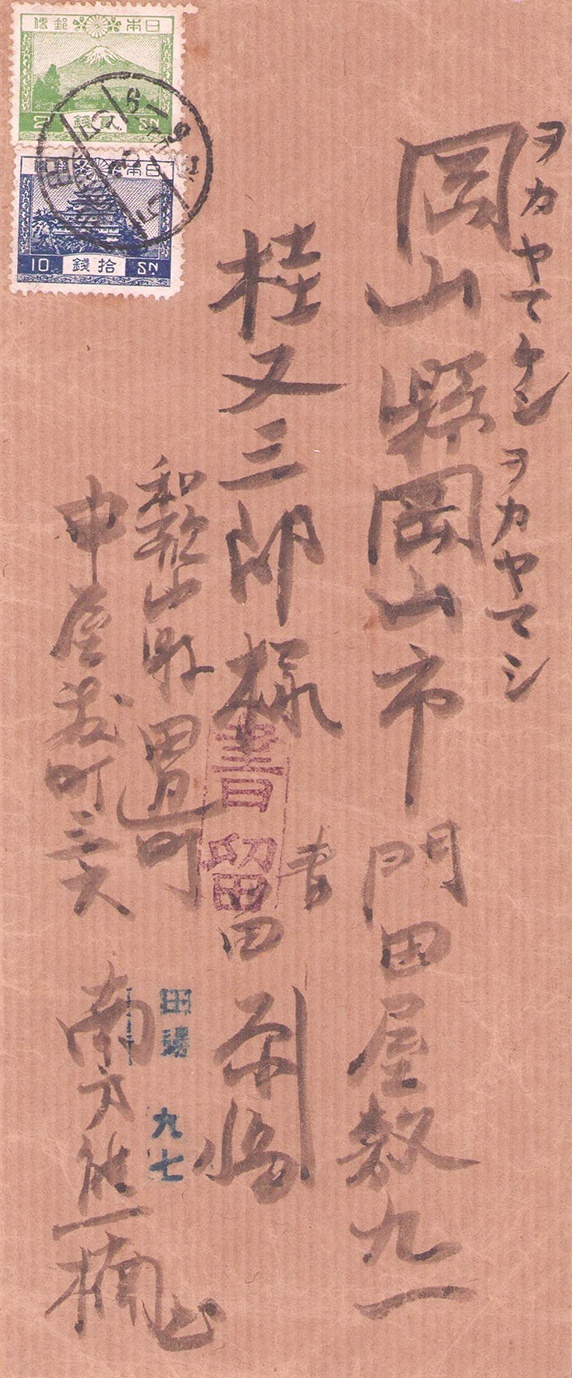 ヲカヤマケン ヲカヤマシ
岡山縣岡山市 門田屋敷九一
桂又三郎様
書留
書留
和歌山縣田邊町
中屋敷町三六
南方熊楠出
田邊 九七
日本郵便
2 貳錢 SN
日本郵便
10 拾錢 SN